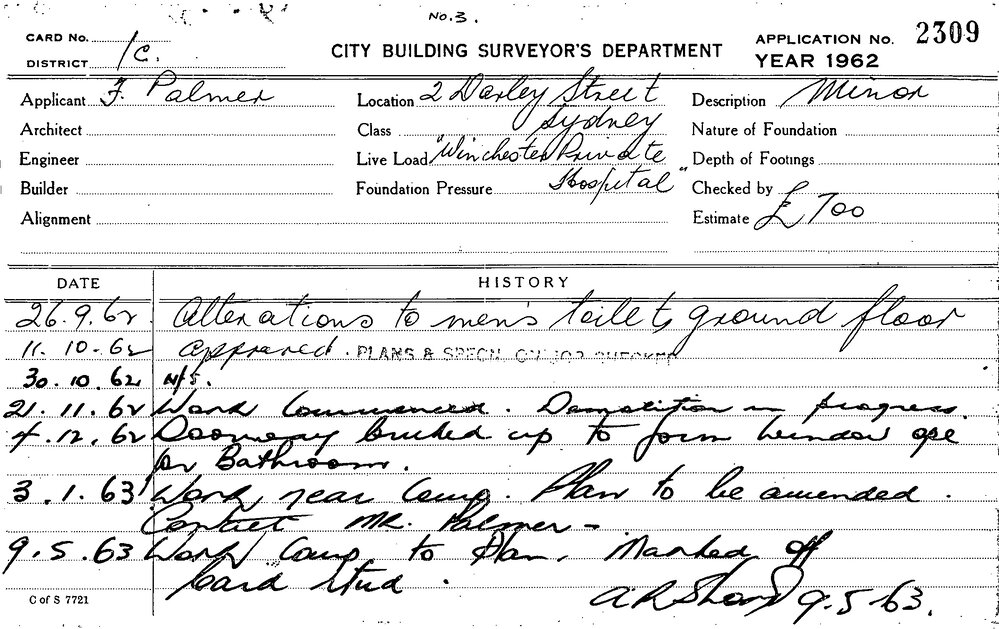 No. 3.
CARD No.
CITY BUILDING SURVEYOR'S DEPARTMENT
APPLICATION No. 2309
DISTRICT 1C.
YEAR 1962
Applicant F. Palmer
Location 2 Darley Street
Description Minor
Architect
Class Sydney
Nature of Foundation
Engineer
Live Load "Winchester Private
Depth of Footings
Builder
Foundation Pressure Hospital"
Checked by
Alignment
Estimate £ 700
DATE HISTORY
26.9.62 Alterations to men's toilet, ground floor
11.10.62 Approved. PLANS & SPECN. ON JOB CHECKED
30.10.62 N/S.
21.11.62 Work Commenced. Demolition in progress.
4.12.62 Doorway bricked up to form window ope
for Bathroom.
3.1.63 Work near Comp. Plan to be amended.
Contact Mr. Palmer -
9.5.63 Work Comp to Plan. Marked off
Card
C of S 7721
9.5.63.